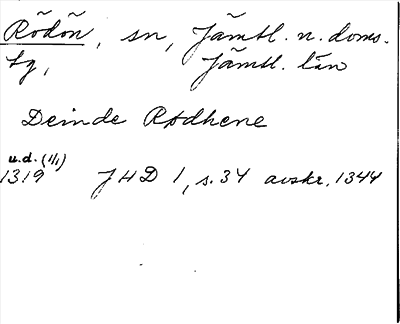 Rödön, sn, Jämtl. n. doms.
tg, Jämtl. län
Deinde Rødhene
u.d. (1/1)
1319 JHD 1, s. 34 avskr. 1344